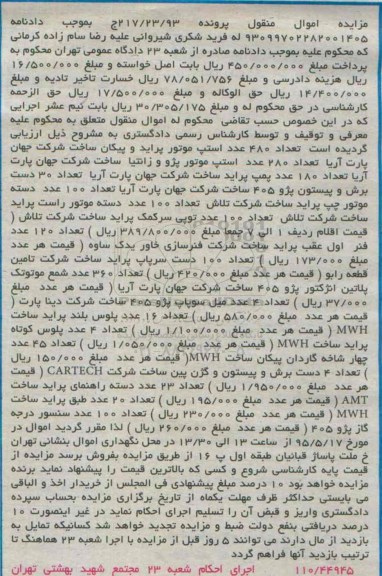 مزایده اموال منقول پرونده ۲۱۷/۲۳/۹۳ج بموجب دادنامه
۹۳۰۹۹۷۰۲۲۸۲۰۰۱۴۰۵ له فرید شکری شیروانی علیه رضا سام زاده کرمانی
که محکوم علیه بموجب دادنامه صادره از شعبه ۲۳ دادگاه عمومی تهران محکوم به
پرداخت مبلغ ۴۵۰/۰۰۰/۰۰۰ ریال بابت اصل خواسته و مبلغ ۱۶/۵۰۰/۰۰۰
ریال هزینه دادرسی و مبلغ ۷۸/۰۵۱/۷۵۶ ریال خسارت تاخیر تادیه و مبلغ
۱۴/۴۰۰/۰۰۰ ریال حق الوکاله و مبلغ ۱۷/۵۰۰/۰۰۰ ریال حق الزحمه
کارشناسی در حق محکوم له و مبلغ ۳۰/۳۰۵/۱۷۵ ریال بابت نیم عشر اجرایی
که در این خصوص حسب تقاضی محکوم له اموال منقول متعلق به محکوم علیه
معرفی و توقیف و توسط کارشناس رسمی دادگستری به مشروح ذیل ارزیابی
گردیده است تعداد ۴۸۰ عدد استپ موتور پراید و پیکان ساخت شرکت جهان
پارت آریا تعداد ۲۸۰ عدد استپ موتور پژو و زانتیا ساخت شرکت جهان پارت
آریا تعداد ۱۸۰ عدد پمپ پراید ساخت شرکت جهان پارت آریا تعداد ۳۰ دست
برش و پیستون پژو ۴۰۵ ساخت شرکت جهان پارت آریا تعداد ۱۰۰ عدد دسته
موتور چپ پراید ساخت شرکت تلاش تعداد ۱۰۰ عدد دسته موتور راست پراید
ساخت شرکت تلاش تعداد ۱۰۰ عدد توپی سرکمک پراید ساخت شرکت تلاش (
قیمت اقلام ردیف ۱ الی ۷ جمعا مبلغ ۳۸۹/۸۰۰/۰۰۰ ریال ) تعداد ۱۲۰ عدد
فنر اول عقب پراید ساخت شرکت فنرسازی خاور یدک ساوه ( قیمت هر عدد
مبلغ ۱۷۳/۰۰۰ ریال ) تعداد ۱۰۰ دست سرپاپ پراید ساخت شرکت تامین
قطعه رابو ( قیمت هر عدد مبلغ ۴۲۰/۰۰۰ ریال ) تعداد ۳۶۰ عدد شمع موتوتک
پلاتین انژکتور پژو ۴۰۵ ساخت شرکت جهان پارت آریا ( قیمت هر عدد مبلغ
۳۷/۰۰۰ ریال ) تعداد ۴ عدد میل سوپاپ پژو ۴۰۵ ساخت شرکت دینا پارت (
قیمت هر عدد مبلغ ۵۸۰/۰۰۰ ریال ) تعداد ۱۶ عدد پلوس بلند پراید ساخت
MWH ( قیمت هر عدد مبلغ ۱/۱۰۰/۰۰۰ ریال ) تعداد ۴ عدد پلوس کوتاه
پراید ساخت MWH ( قیمت هر عدد مبلغ ۱/۰۵۰/۰۰۰ ریال ) تعداد ۴۵ عدد
چهار شاخه گاردان پیکان ساخت MWH( قیمت هر عدد مبلغ ۱۵۰/۰۰۰ ریال
) تعداد ۴ دست برش و پیستون و گژن پین ساخت شرکت CARTECH ( قیمت
هر عدد مبلغ ۱/۹۵۰/۰۰۰ ریال ) تعداد ۲۳ عدد دسته راهنمای پراید ساخت
AMT ( قیمت هر عدد مبلغ ۱۹۵/۰۰۰ ریال ) تعداد ۲۰ عدد طبق پراید ساخت
MWH ( قیمت هر عدد مبلغ ۲۳۰/۰۰۰ ریال ) تعداد ۱۰۰ عدد سنسور درجه
گاز پژو ۴۰۵ ( قیمت هر عدد مبلغ ۲۶۰/۰۰۰ ریال ) لذا مقرر گردید اموال در
مورخ ۹۵/۵/۱۷ از ساعت ۱۳ الی ۱۳/۳۰ در محل نگهداری اموال بنشانی تهران
خ ملت پاساژ قبانیان طبقه اول پ ۱۶ از طریق مزایده بفروش برسد مزایده از
قیمت پایه کارشناسی شروع و کسی که بالاترین قیمت را پیشنهاد نماید برنده
مزایده خواهد بود ۱۰ درصد مبلغ پیشنهادی فی المجلس از خریدار اخذ و الباقی
می بایستی حداکثر ظرف مهلت یکماه از تاریخ برگزاری مزایده بحساب سپرده
دادگستری واریز و قبض آن را تسلیم اجرای احکام نماید در غیر اینصورت ۱۰
درصد دریافتی بنفع دولت ضبط و مزایده تجدید خواهد شد کسانیکه تمایل به
بازدید از مال دارند می توانند ۵ روز قبل از مزایده با اجرا شعبه ۲۳ هماهنگ تا
ترتیب بازدید آنها فراهم گردد
۱۱۰/۴۴۹۴۵ اجرای احکام شعبه ۲۳ مجتمع شهید بهشتی تهران